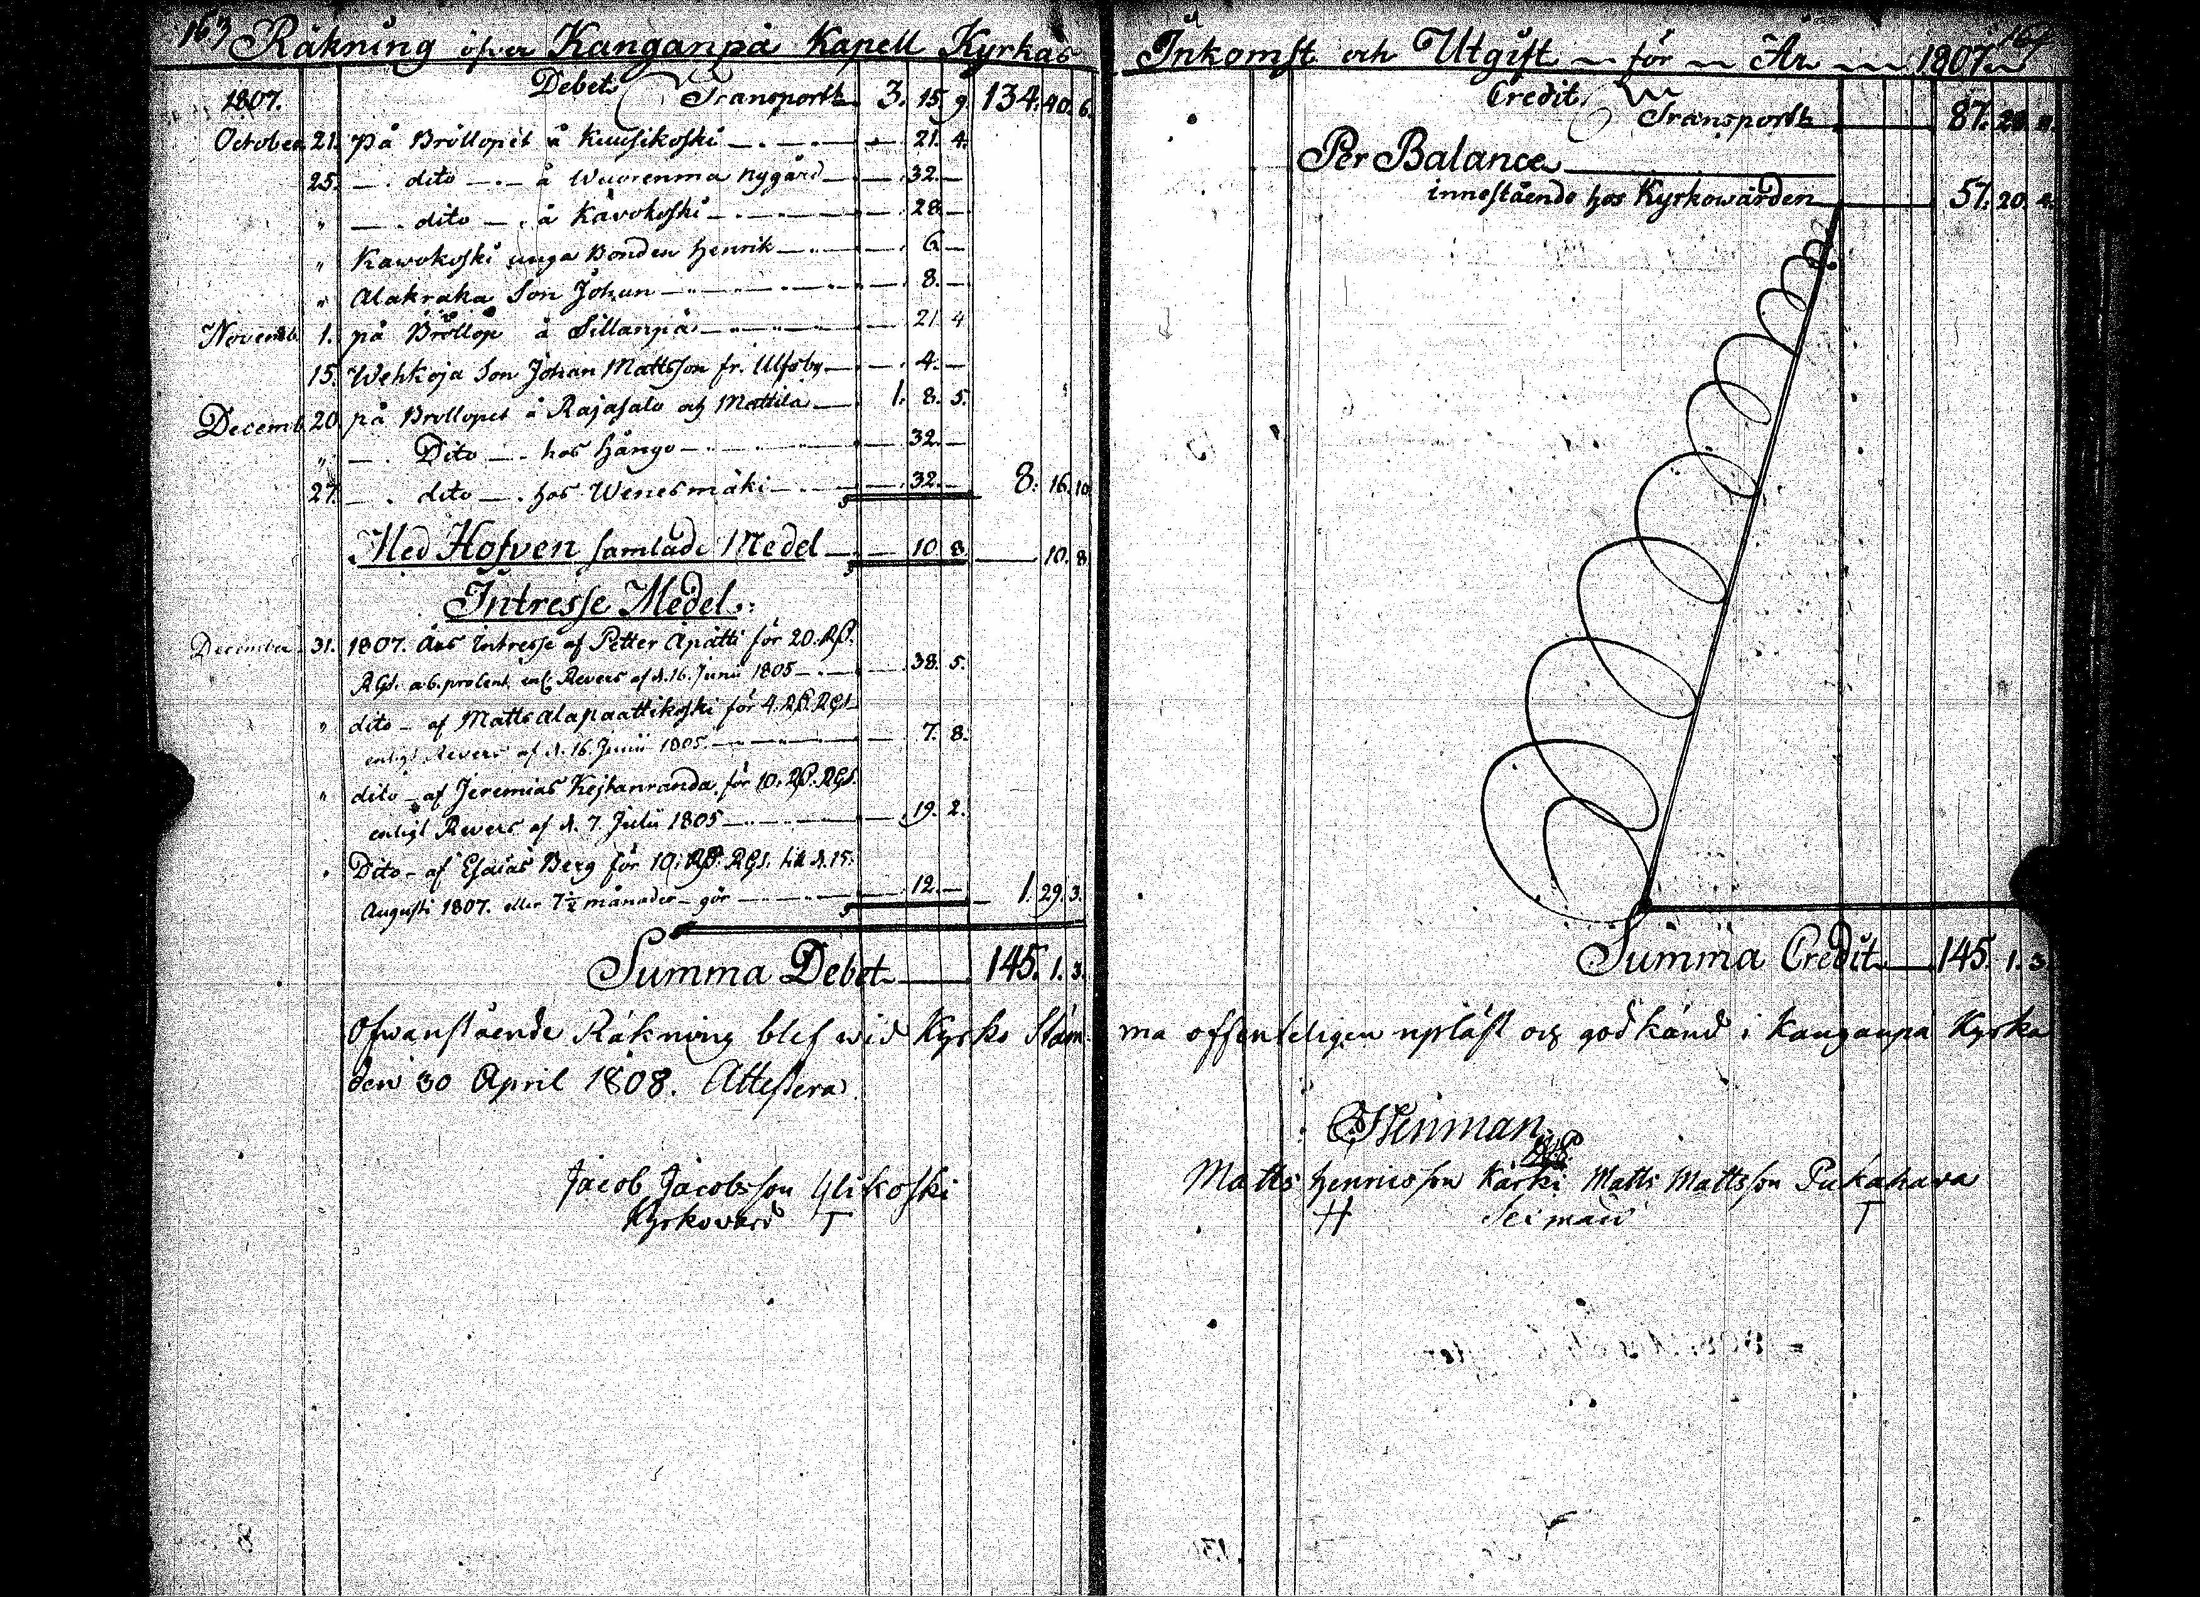 163 Räkning öfver Kanganpä Kapell Kyrkas
1807. Debet Transport 3. 15 9 134. 40. 6.
October 21. På Bröllopet å Kuusikoski 21. 4.
25. dito å Wuorenma nygård 32.
" dito å Kåvokoski 28.
" Kawokoski unga Bonden Henrik 6
" Alakraka Son Johan 8.
Novemb. 1. på Bröllop å Sillanpä 21 4
15. Wehkoja Son Johan Mattsson fr. Ulfsby 4.
Decemb. 20 på Bröllopet å Rajasalo och Mattila 1. 8. 5.
" Dito hos Hångo 32.
27. dito hos Wenesmäki 32. 8. 16. 10
Med Hofven samlade Medel 10 8 10. 8
Intresse Medel.
December 31. 1807. Års Intresse af Petter Apatti för 20. RD.
RGS. a 6. procent enl. Revers af d. 16. Junii 1805 38. 5.
" dito af Matts Alapaattikoski för 4. RD. RGS.
enligt Revers af d. 16. Junii 1805. 7. 8.
" dito af Jeremias Kejkanranda för 10. RD. RGS.
enligt Revers af d. 7. Julii 1805 19. 2.
" Dito af Esaias Berg för 10. RD. RGS. til d. 15.
Augusti 1807. eller 7½ månader gör 12. 1. 29. 3.
Summa Debet 145. 1. 3.
Ofwanstående Räkning blef wid Kyrko Stäm-
den 30 April 1808. Attestera
Jacob Jacobsson Ylikoski
Kyrkovärd T
Inkomst och Utgift för År 1807 164
Credit
Transport 87. 28.
Per Balance
innestående hos Kyrkowärden 57. 20.
Summa Credit 145. 1. 3
ma offenteligen upläst och godkänd i Kangaupä Kyrka
Matts Henricsson Kärki Matts Mattsson Pukahara
H Sexmän T